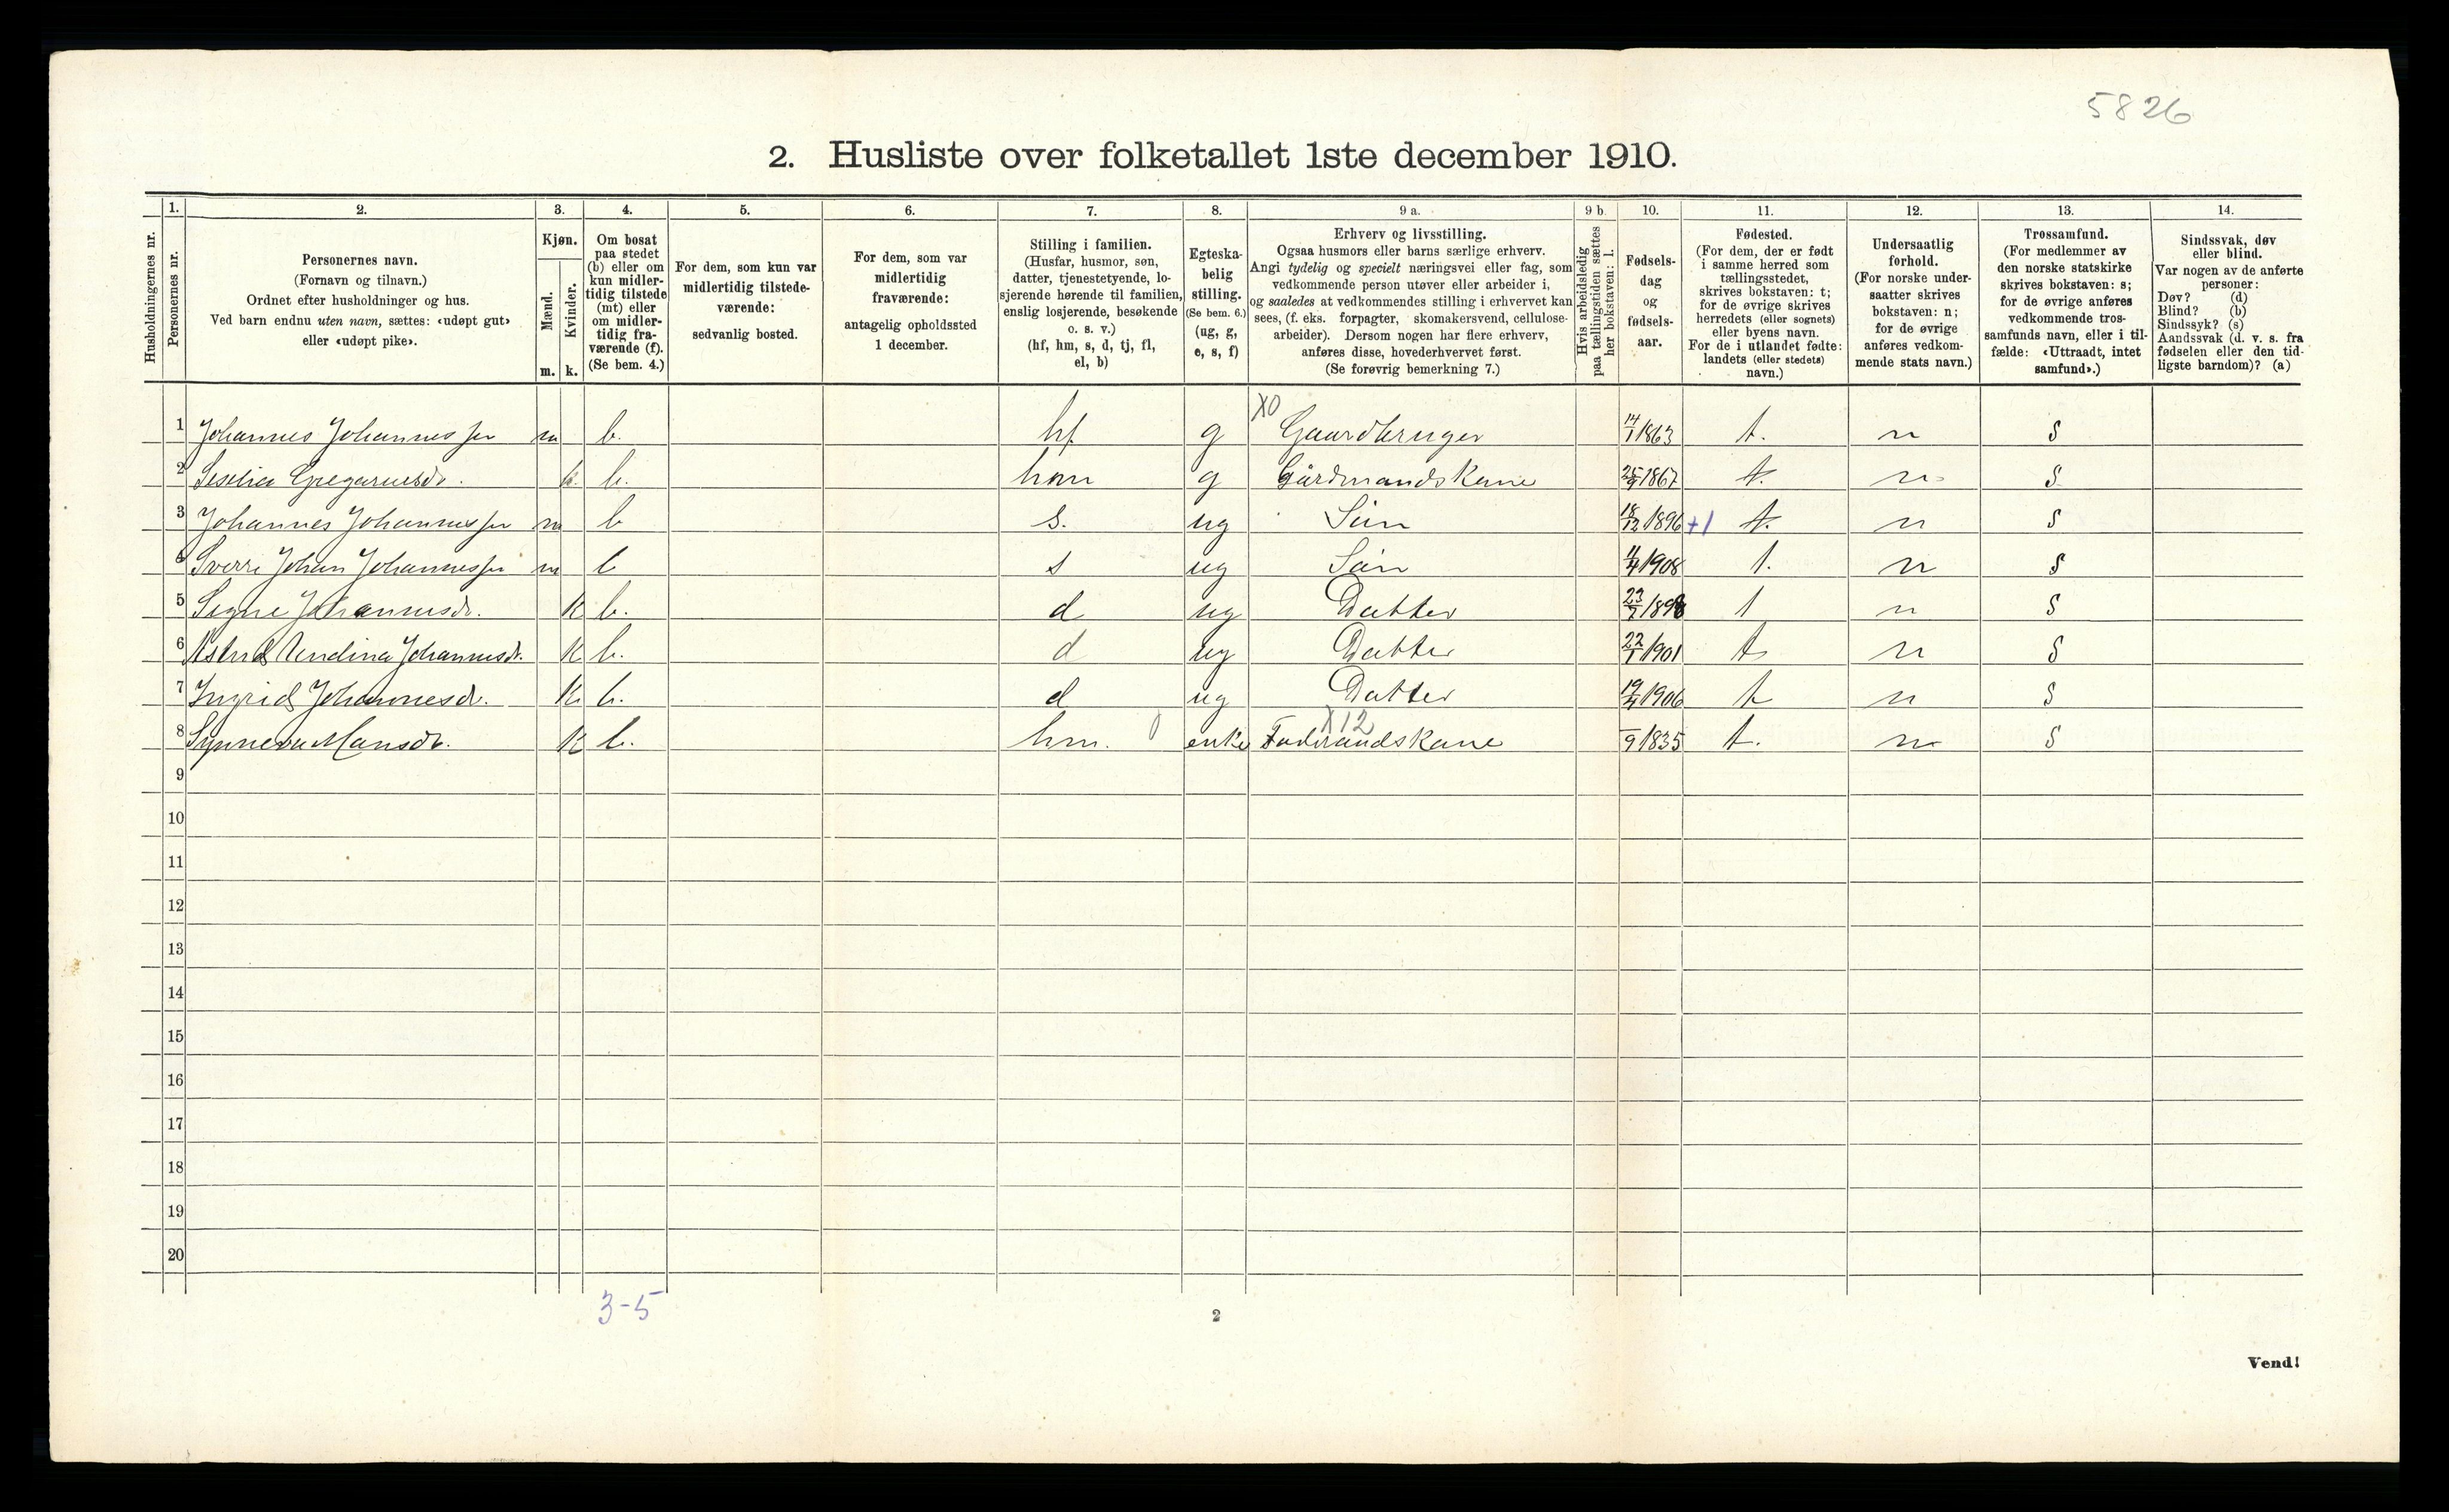 5826
2. Husliste over folketallet 1ste december 1910.
1. 2. 3. 4. 5. 6. 7. 8. 9 a. 9 b. 10. 11. 12. 13. 14.
Husholdningernes nr.
Personernes nr.
Personernes navn.
(Fornavn og tilnavn.)
Ordnet efter husholdninger og hus.
Ved barn endnu uten navn, sættes: «udøpt gut»
eller «udøpt pike».
Kjøn.
Mænd.
Kvinder.
m. k.
Om bosat
paa stedet
(b) eller om
kun midler-
tidig tilstede
(mt) eller
om midler-
tidig fra-
værende (f).
(Se bem. 4.)
For dem, som kun var
midlertidig tilstede-
værende:
sedvanlig bosted.
For dem, som var
midlertidig
fraværende:
antagelig opholdssted
1 december.
Stilling i familien.
(Husfar, husmor, søn,
datter, tjenestetyende, lo-
sjerende hørende til familien,
enslig losjerende, besøkende
o. s. v.)
(hf, hm, s, d, tj, fl,
el, b)
Egteska-
belig
stilling.
(Se bem. 6.)
(ug, g,
e, s, f)
Erhverv og livsstilling.
Ogsaa husmors eller barns særlige erhverv.
Angi tydelig og specielt næringsvei eller fag, som
vedkommende person utøver eller arbeider i,
og saaledes at vedkommendes stilling i erhvervet kan
sees, (f. eks. forpagter, skomakersvend, cellulose-
arbeider). Dersom nogen har flere erhverv,
anføres disse, hovederhvervet først.
(Se forøvrig bemerkning 7.)
Hvis arbeidsledig
paa tællingstiden sættes
her bokstaven: l.
Fødsels-
dag
og
fødsels-
aar.
Fødested.
(For dem, der er født
i samme herred som
tællingsstedet,
skrives bokstaven: t;
for de øvrige skrives
herredets (eller sognets)
eller byens navn.
For de i utlandet fødte:
landets (eller stedets)
navn.)
Undersaatlig
forhold.
(For norske under-
saatter skrives
bokstaven: n;
for de øvrige
anføres vedkom-
mende stats navn.)
Trossamfund.
(For medlemmer av
den norske statskirke
skrives bokstaven: s;
for de øvrige anføres
vedkommende tros-
samfunds navn, eller i til-
fælde: «Uttraadt, intet
samfund».)
Sindssvak, døv
eller blind.
Var nogen av de anførte
personer:
Døv? (d)
Blind? (b)
Sindssyk? (s)
Aandssvak (d. v. s. fra
fødselen eller den tid-
ligste barndom)? (a)
X0
1 Johannes Johannessen m b. hf g Gaardbruger 14/1 1863 t. n s
2 Sesilia Gregariusdr. k. b. hm g Gårdmandskone 25/9 1867 t. n s
3 Johannes Johannessen m b s. ug Sön 18/12 1896 +1 t. n s
4 Sverre Johan Johannessen m b s ug Sön 11/4 1908 t. n s
5 Signe Johannesdr. k b. d ug Datter 23/7 1898 t n s
6 Astrid Undina Johannesdr. k b. d ug Datter 22/1 1901 t n s
7 Ingrid Johannesdr. k b. d ug Datter 19/4 1906 t n s
X12
8 Synneva Monsdr. k b. hm. 0 enke Foderaadskone /9 1835 t. n s
9
10
11
12
13
14
15
16
17
18
19
20
3-5
2
Vend!